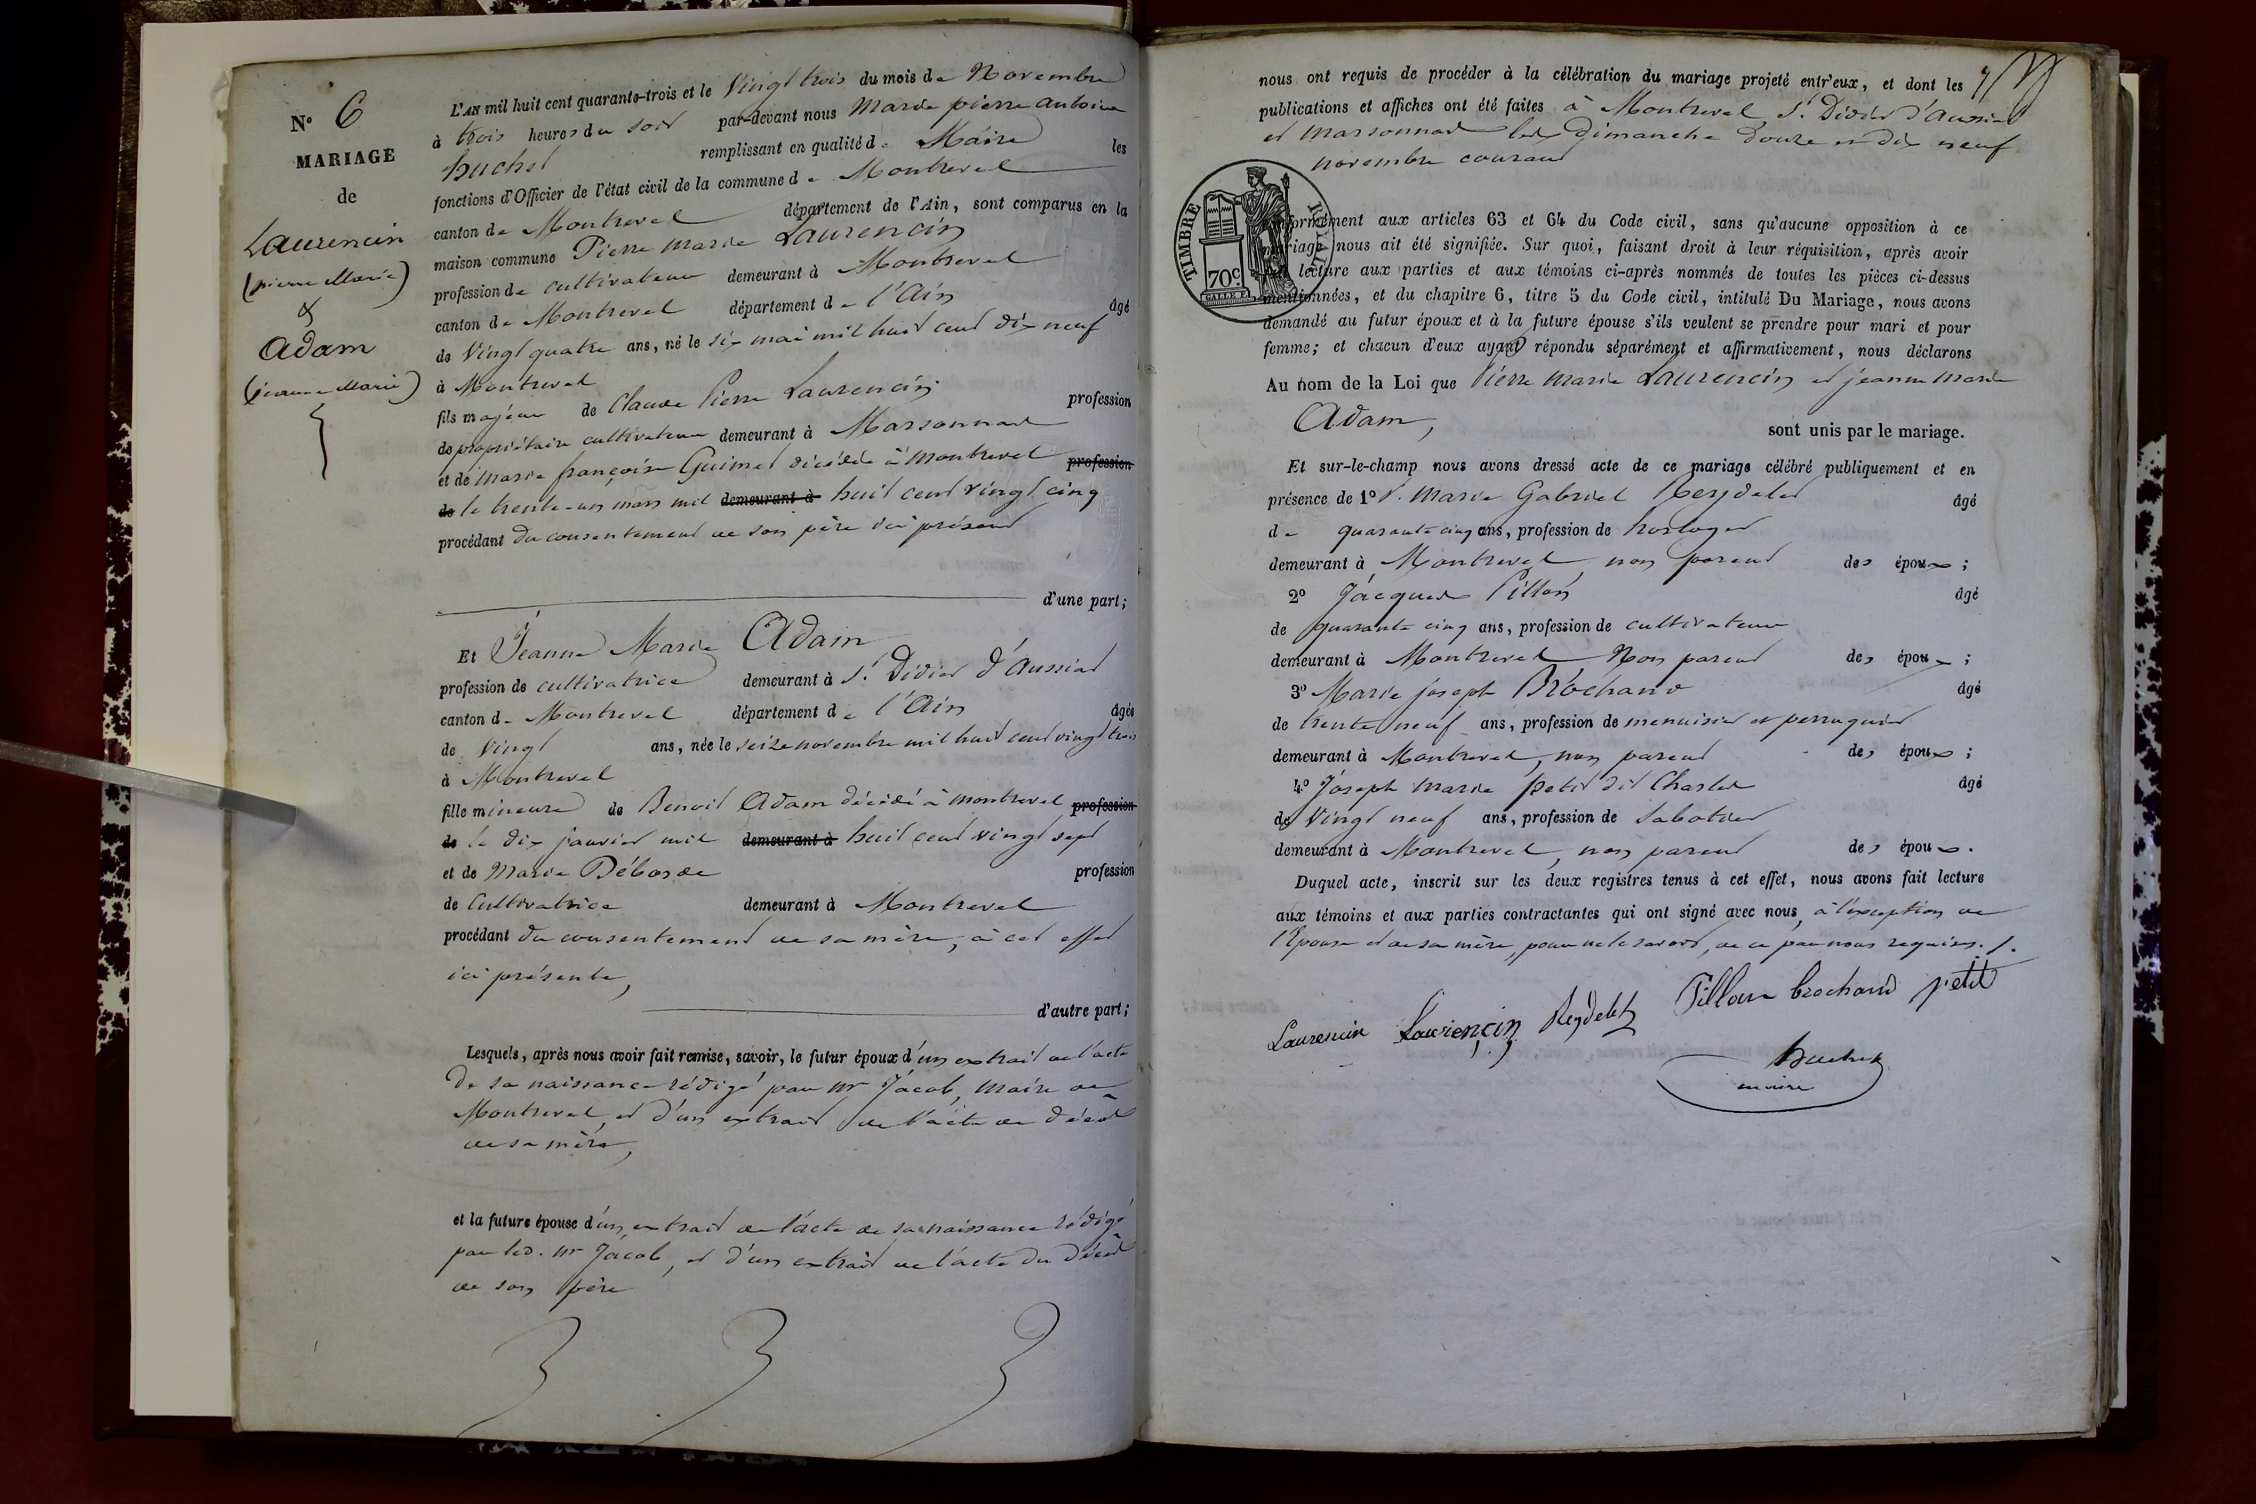 N° 6
MARIAGE
de
Laurencin
(pierre Marie)
&
Adam
(jeanne Marie)
L'AN mil huit cent quarante-trois et le Vingt trois du mois de Novembre
à trois heures du soir par-devant nous Marie pierre antoine
huchet remplissant en qualité de Maire les
fonctions d'Officier de l'état civil de la commune de Montrevel
canton de Montrevel département de l'Ain, sont comparus en la
maison commune Pierre Marie Laurencin
profession de cultivateur demeurant à Montrevel
canton de Montrevel département de l'Ain âgé
de Vingt quatre ans, né le six mai mil huit cent dix neuf
à Montrevel
fils majeur de Claude Pierre Laurencin profession
de propriétaire cultivateur demeurant à Marsonnas
et de Marie françoise Guimet décédée à Montrevel profession
de le trente-un mars mil demeurant à huit cent vingt cinq
procédant du consentement de son père ici présent
d'une part;
Et Jeanne Marie Adam
profession de cultivatrice demeurant à St. Didier d'Aussiat
canton de Montrevel département de l'Ain âgée
de Vingt ans, née le seize novembre mil huit cent vingt trois
à Montrevel
fille mineure de Benoit Adam décédé à Montrevel profession
de le dix janvier mil demeurant à huit cent vingt sept
et de Marie Débosde profession
de Cultivatrice demeurant à Montrevel
procédant du consentement de sa mère, à cet effet
ici présente,
d'autre part;
Lesquels, après nous avoir fait remise, savoir, le futur époux d'un extrait de l'acte
de sa naissance rédigé par Mr Jacob, Maire de
Montrevel, et d'un extrait de l'acte de décès
de sa mère,
et la future épouse d'un extrait de l'acte de sa naissance rédigé
par led. Mr Jacob, et d'un extrait de l'acte du décès
de son père
nous ont requis de procéder à la célébration du mariage projeté entr'eux, et dont les
publications et affiches ont été faites à Montrevel St. Didier d'Aussiat
et Marsonnas les Dimanche douze et dix neuf
novembre courant
TIMBRE ROYAL
70 c.
conformément aux articles 63 et 64 du Code civil, sans qu'aucune opposition à ce
mariage nous ait été signifiée. Sur quoi, faisant droit à leur réquisition, après avoir
fait lecture aux parties et aux témoins ci-après nommés de toutes les pièces ci-dessus
mentionnées, et du chapitre 6, titre 5 du Code civil, intitulé Du Mariage, nous avons
demandé au futur époux et à la future épouse s'ils veulent se prendre pour mari et pour
femme; et chacun d'eux ayant répondu séparément et affirmativement, nous déclarons
Au nom de la Loi que Pierre Marie Laurencin et jeanne Marie
Adam,
sont unis par le mariage.
Et sur-le-champ nous avons dressé acte de ce mariage célébré publiquement et en
présence de 1° Marie Gabriel Reydelet âgé
de quarante cinq ans, profession de horloger
demeurant à Montrevel non parent des époux ;
2° Jacques Pillon âgé
de quarante cinq ans, profession de cultivateur
demeurant à Montrevel Non parent des époux ;
3° Marie joseph Brochand âgé
de trente neuf ans, profession de menuisier et perruquier
demeurant à Montrevel, non parent des époux ;
4° Joseph Marie petit dit Charlet âgé
de Vingt neuf ans, profession de sabotier
demeurant à Montrevel, non parent des époux.
Duquel acte, inscrit sur les deux registres tenus à cet effet, nous avons fait lecture
aux témoins et aux parties contractantes qui ont signé avec nous, à l'exception de
l'Epouse et de sa mère, pour ne le savoir, de ce par nous requises./.
Laurencin Laurençin Reydelet Pillon brochand petit
huchet
maire